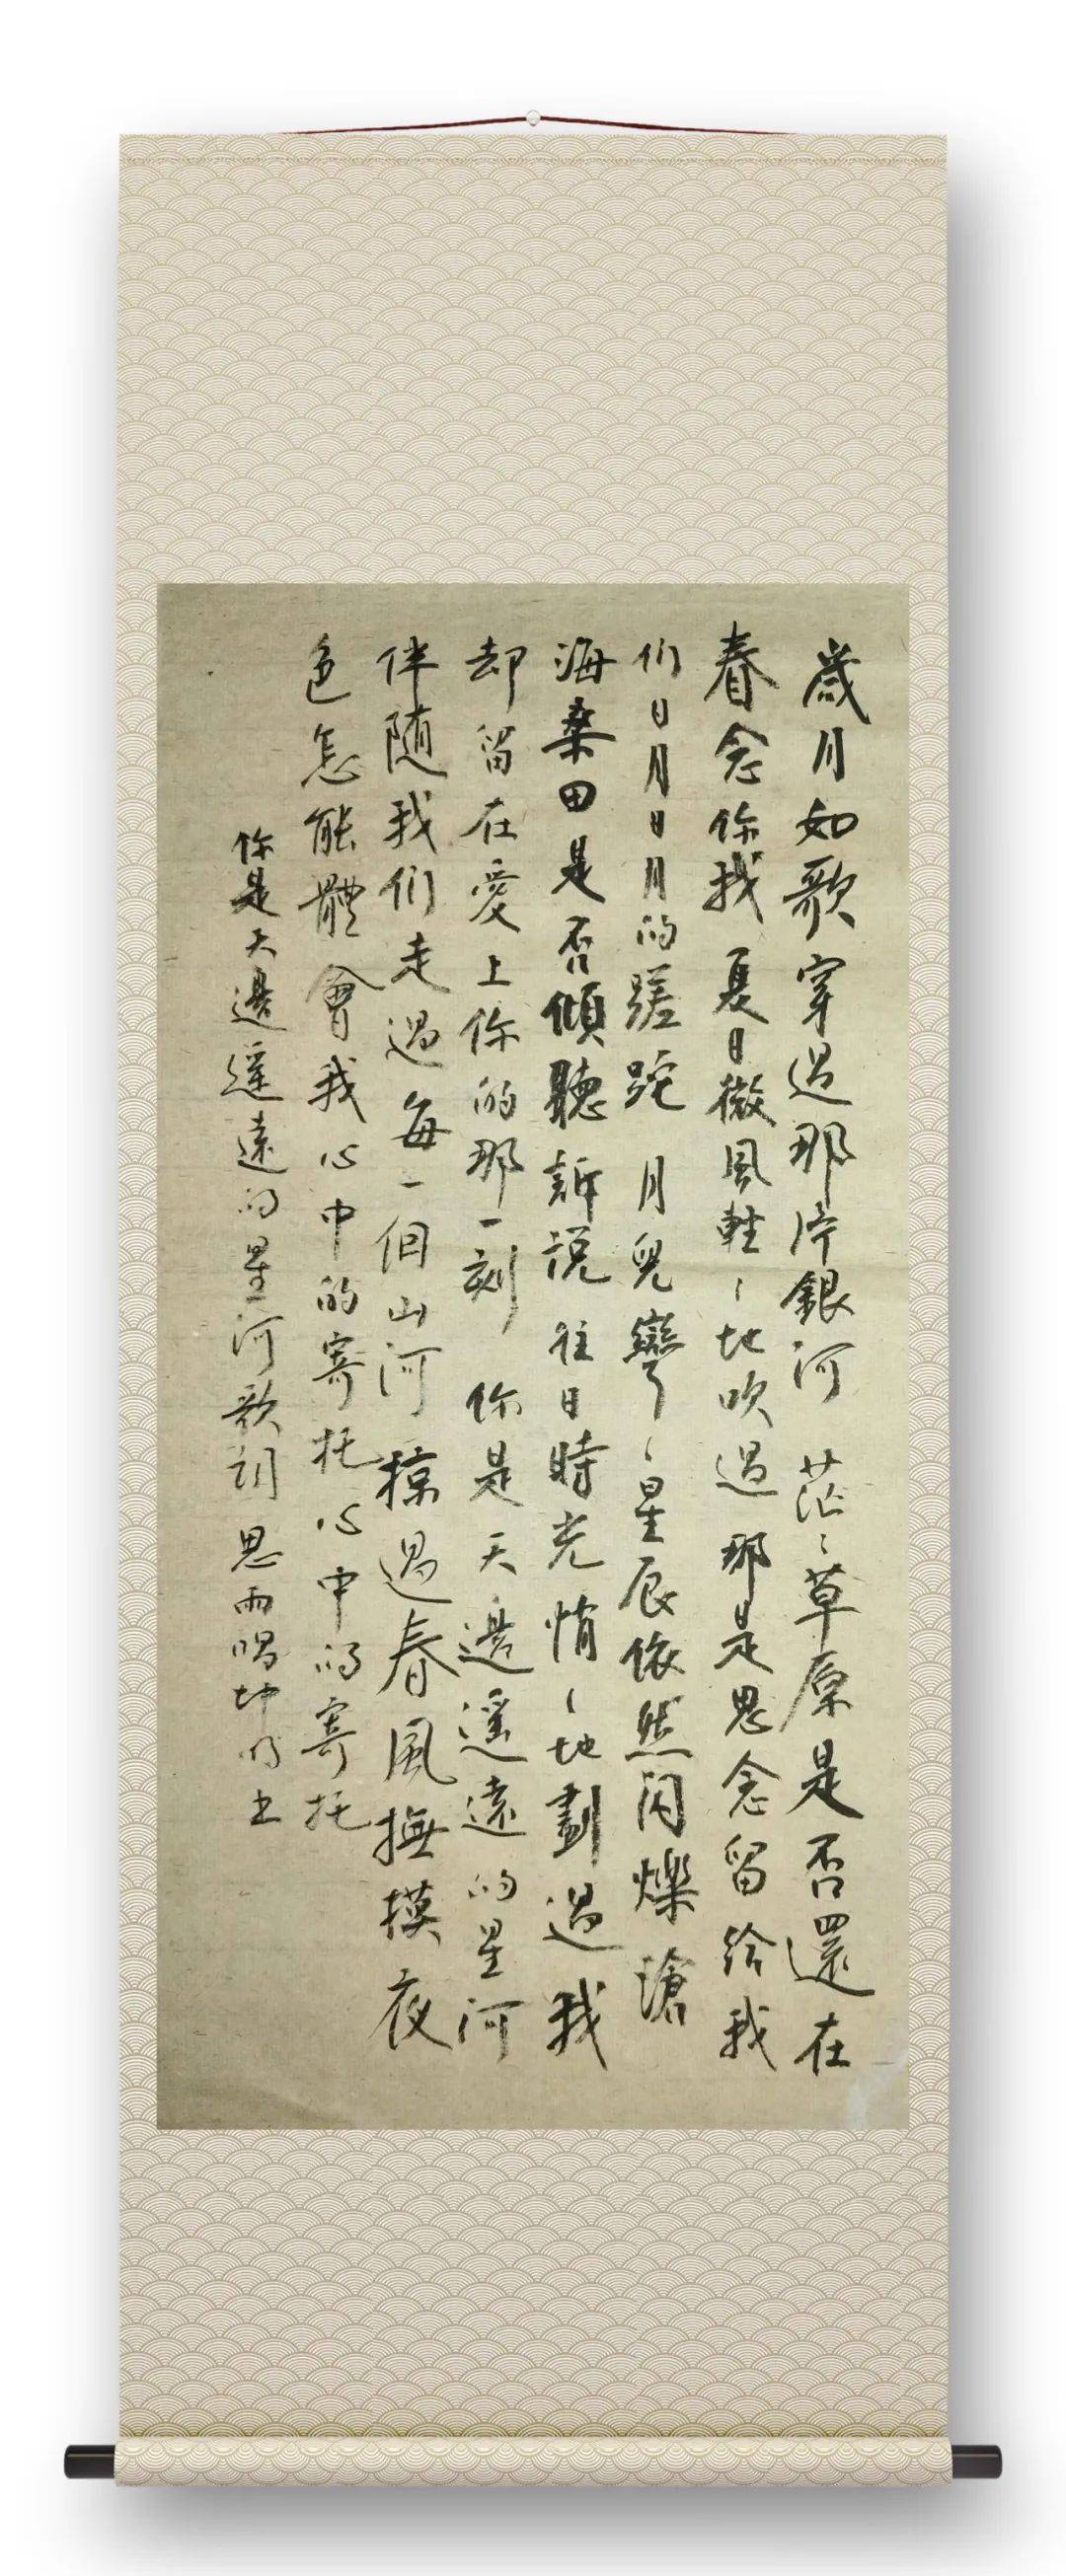 歲月如歌穿過那片銀河 茫〻草原是否還在
春念你我 夏日微風輕〻地吹過 那是思念留給我
们日月日月的蹉跎 月兒彎〻星辰依然闪爍 滄
海桑田是否傾聽訴説 往日時光悄〻地劃過我
却留在愛上你的那一刻 你是天邊遥遠的星河
伴随我们走過每一個山河 掠過春風撫摸夜
色怎能體會我心中的寄托心中的寄托
你是天邊遥遠的星河歌詞 思雨唱坤明书